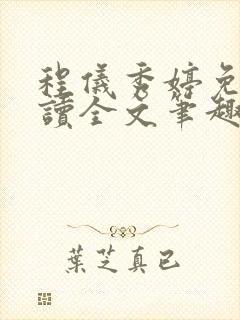 程儀秀婷免
讀全文筆趣
葉芝真已